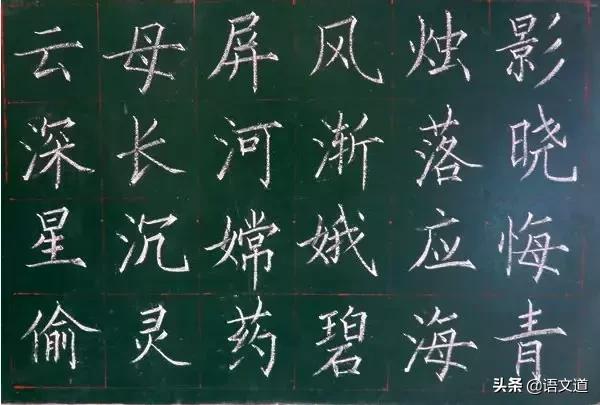 云母屏风烛影
深长河渐落晓
星沉嫦娥应悔
偷灵药碧海青
头条 @语文道